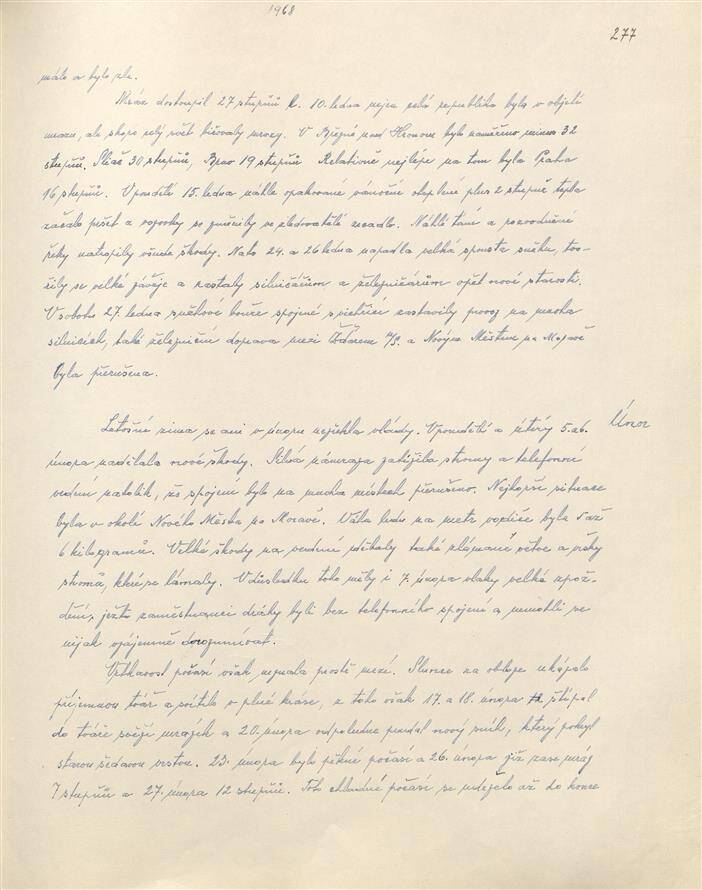 1968
277
málo a bylo zle.
Mráz dostoupil 27 stupňů C. 10. ledna nejen celá republika byla v objetí
mrazu, ale skoro celý svět bičovaly mrazy. V Brezně nad Hronom bylo naměřeno minus 32
stupňů. Sliač 30 stupňů, Brno 19 stupňů Relativně nejlépe na tom byla Praha
16 stupňů. V pondělí 15. ledna náhle opakované vánoční oteplení plus 2 stupně tepla
začalo pršet a vozovky se změnily ve zledovatělé zrcadlo. Náhlé tání a rozvodněné
řeky natropily všude škody. Nato 24. a 26 ledna napadla velká spousta sněhu, tvo-
řily se velké závěje a nastaly silničářům a železničářům opět nové starosti.
V sobotu 27. ledna sněhové bouře spojené s vichřicí zastavily provoz na mnoha
silnicích, také železniční doprava mezi Žďárem n/S. a Novým Městem na Moravě
byla přerušena.
Letošní zima se ani v únoru nezřekla vlády. V pondělí a úterý 5. a 6.
Únor
února nadělala nové škody. Silná námraza zatížila stromy a telefonní
vedení natolik, že spojení bylo na mnoha místech přerušeno. Nejhorší situace
byla v okolí Nového Města na Moravě. Váha ledu na metr vodiče byla 5 až
6 kilogramů. Velké škody na vedení udělaly také zlámané větve a vršky
stromů, které se lámaly. V důsledku toho měly i 7. února vlaky velké zpož-
dění, ježto zaměstnanci dráhy byli bez telefonního spojení a nemohli se
nijak vzájemně dorozumívat.
Vrtkavost počasí však neznala prostě mezí. Slunce na obloze ukázalo
příjemnou tvář a svítilo v plné kráse, z toho však 17. a 18. února štípal
do tváře svěží mrazík a 20. února odpoledne padal nový sníh, který pokryl
starou šedavou vrstvu. 23. února bylo pěkné počasí a 26. února již zase mráz
7 stupňů a 27. února 12 stupňů. Toto chladné počasí se udrželo až do konce